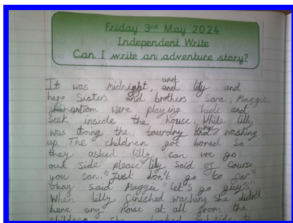 Friday 3rd May 2024
Independent Write
Can I write an adventure story?
It was midnight, and lily and
here sisters and brothers sara, Maggie
were playing hide and
seek inside the house. While lilly
was doing the laundry and washing
up. The children got bored so
they asked lilly can we go
out side please" lilly said of course
you can. "Just don't go to far"
Okay said Maggie let's go guys".
When lilly finished washing she didn't
here any noise at all from the
children